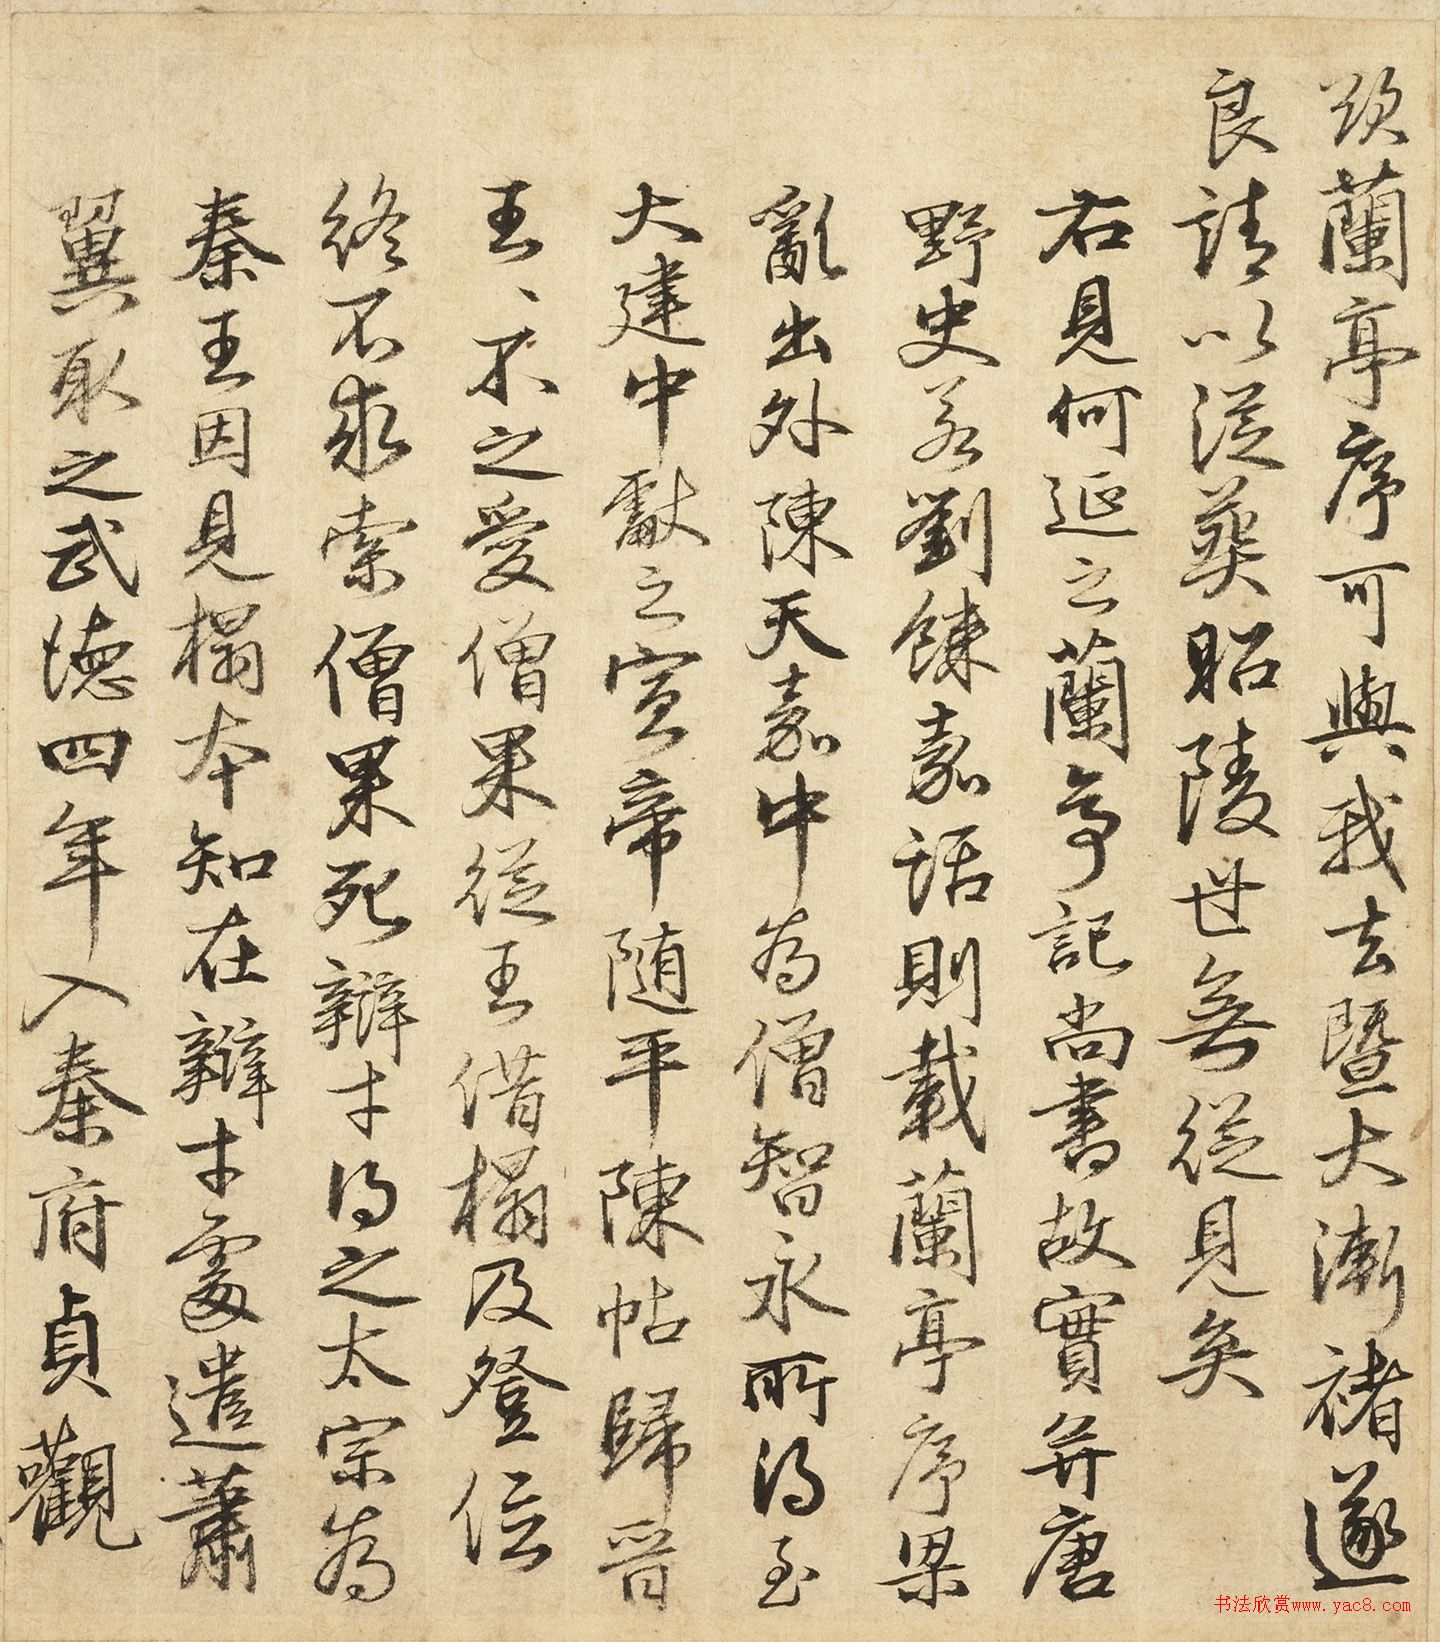 须蘭亭序可與我去暨大漸褚遂
良請以從葬昭陵世無從見矣
右見何延之蘭亭記尚書故實并唐
野史若劉餗嘉話則載蘭亭序梁
亂出外陳天嘉中為僧智永所得至
大建中獻之宣帝随平陳帖歸晉
王王不之愛僧果從王借榻及登位
終不求索僧果死辯才得之太宗為
秦王因見榻本知在辯才處遣蕭
翼取之武德四年入秦府貞觀
书法欣赏www.yac8.com